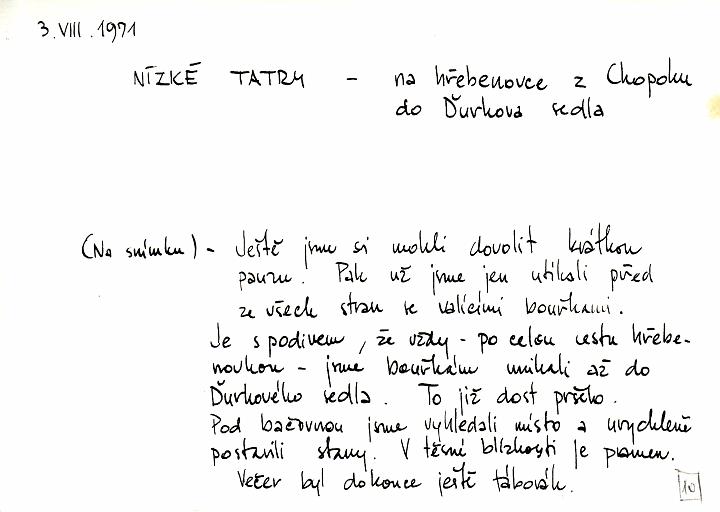 3.VIII.1971
NÍZKÉ TATRY - na hřebenovce z Chopoku
do Ďurkova sedla
(Na snímku) - Ještě jsme si mohli dovolit krátkou
pauzu. Pak už jsme jen utíkali před
ze všech stran se valícími bouřkami.
Je s podivem, že vždy - po celou cestu hřebe-
novkou - jsme bouřkám unikali až do
Ďurkového sedla. To již dost pršelo.
Pod bačovnou jsme vyhledali místo a urychleně
postavili stany. V těsné blízkosti je pramen.
Večer byl dokonce ještě táborák.
10